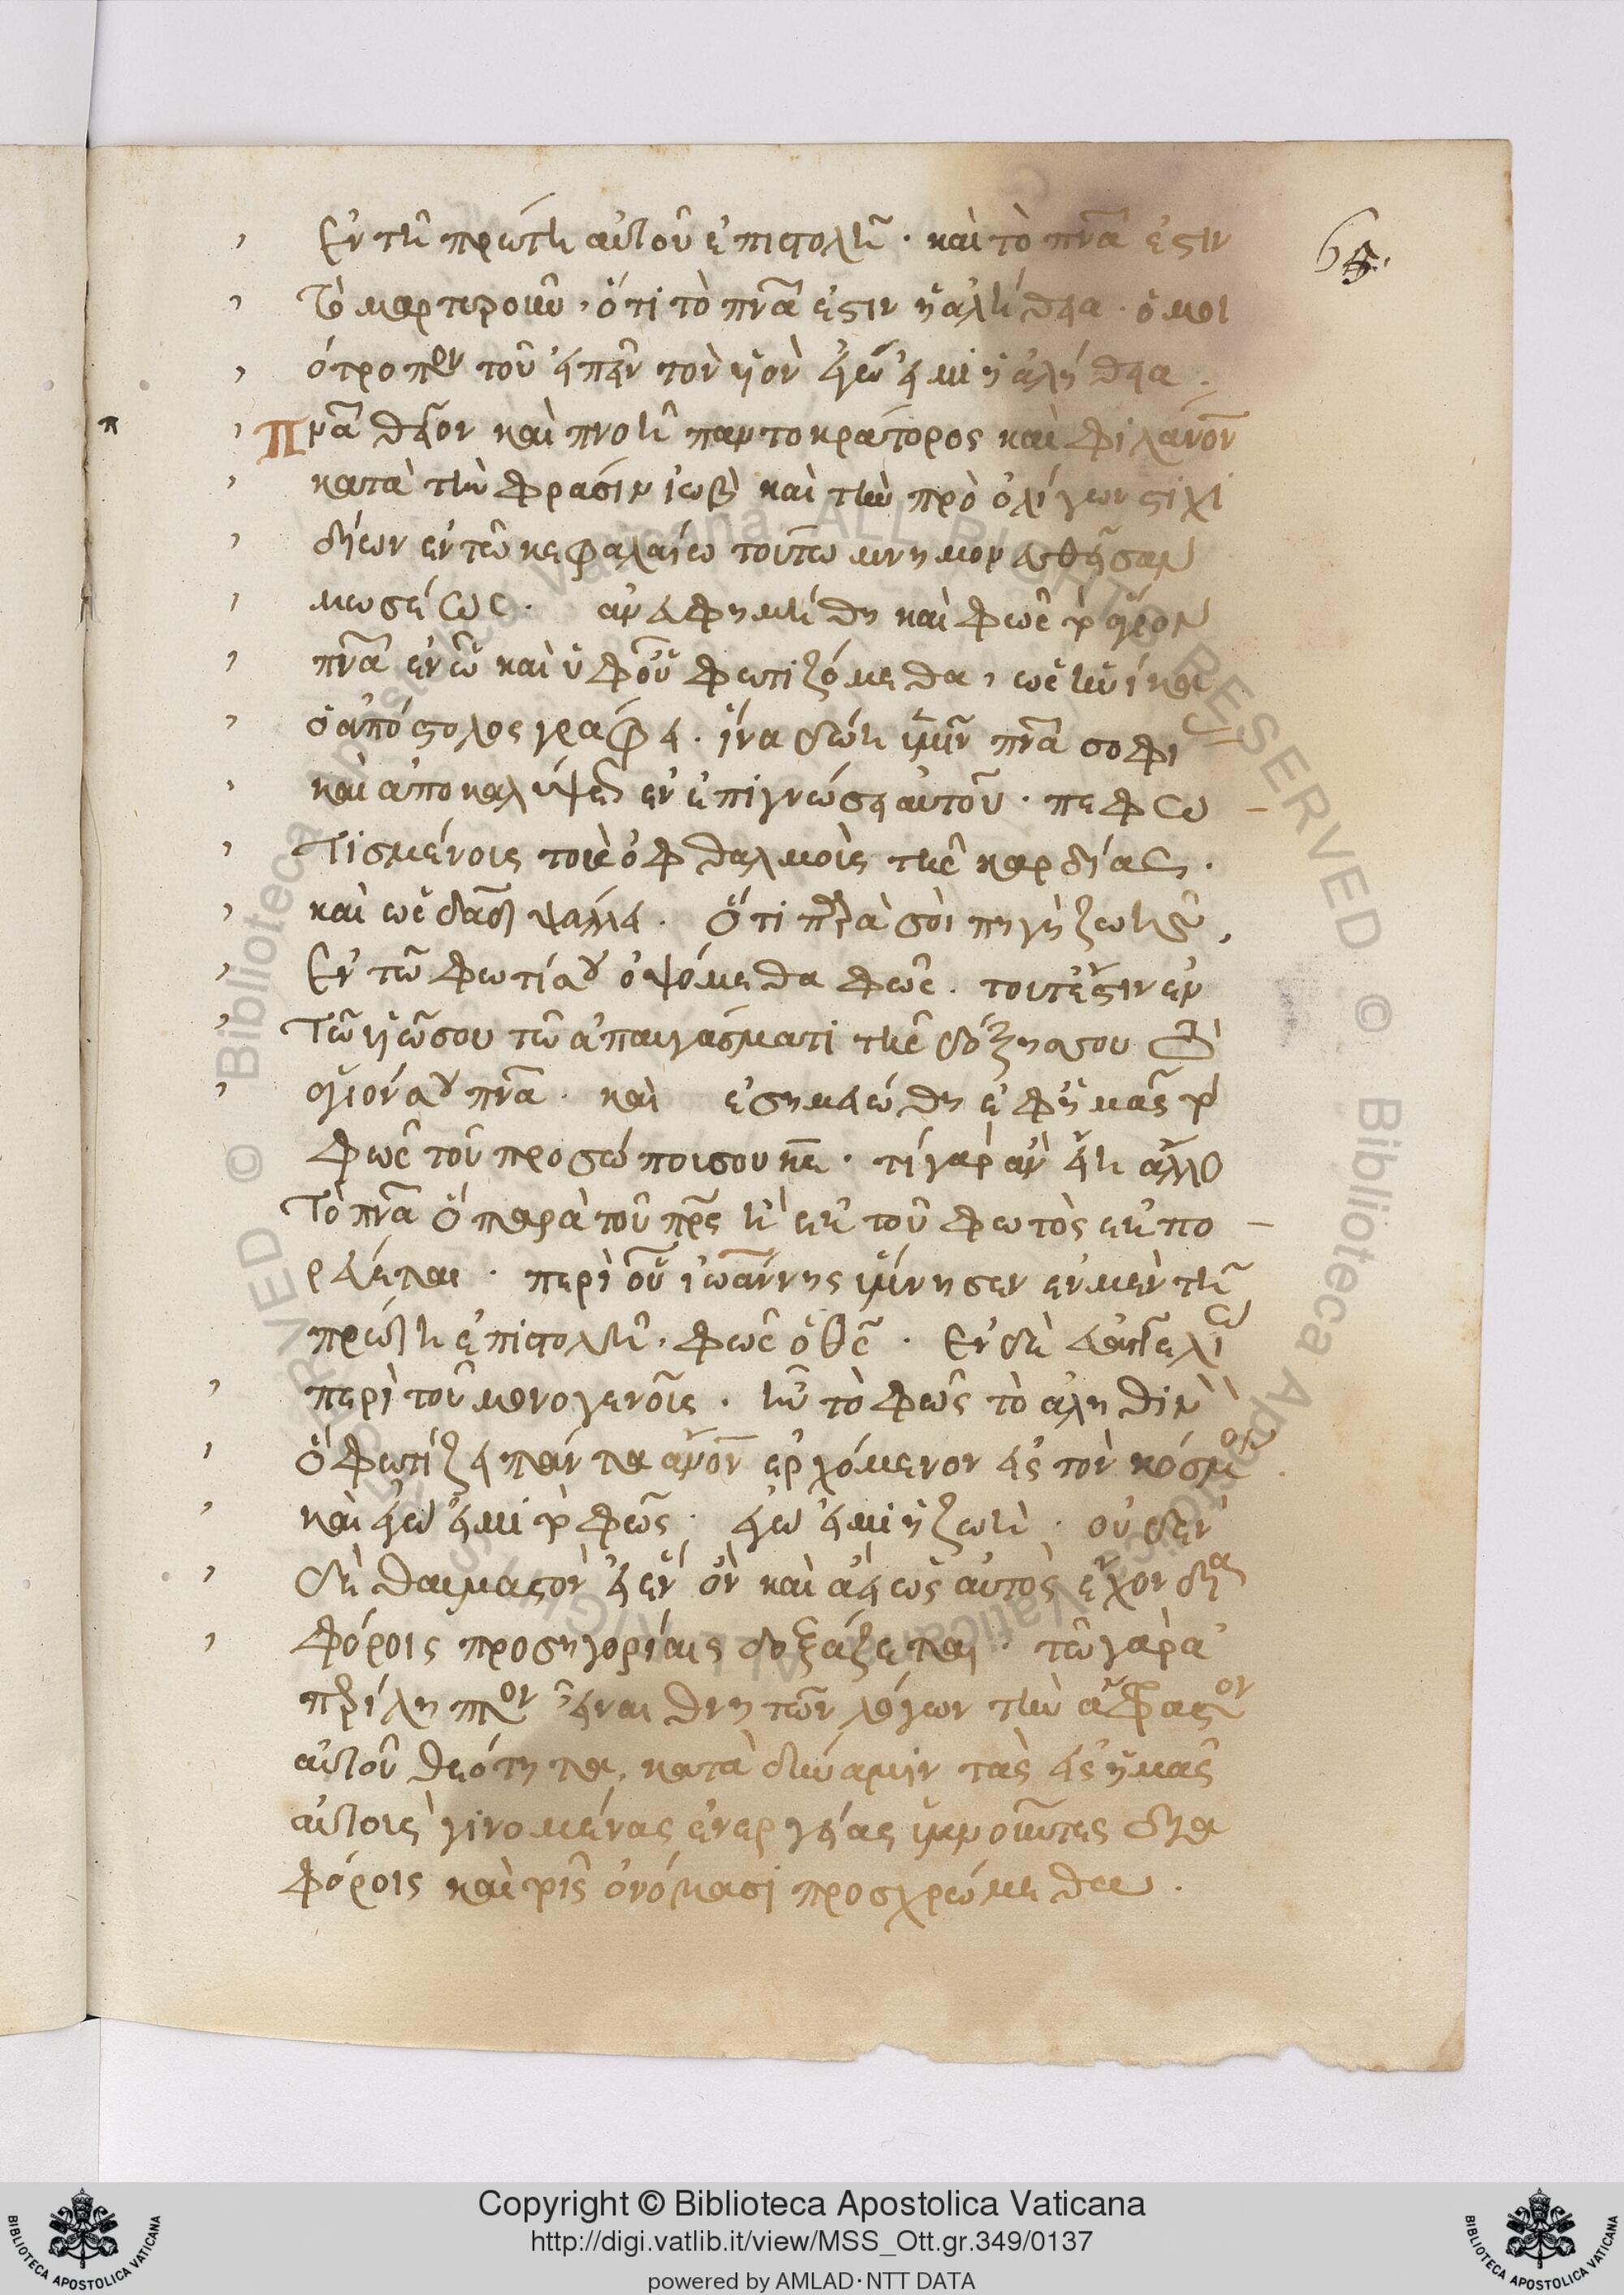 65.
Ἐν τῆ πρώτη αὐτοῦ ἐπιστολῆ · καὶ τὸ πνᾶ ἐστιν
τὸ μαρτυροῦν, ὅτι τὸ πνᾶ ἐστιν ἡ ἀλήθεια · ὁμοι
ότροπον τοῦ εἰπεῖν τὸν υἱὸν ἐγώ εἰμι ἡ ἀλήθεια ·
π
Πνᾶ θεῖον καὶ πνοὴ παντοκράτορος καὶ φιλάνον
κατὰ τὴν φράσιν ἰωβ καὶ τὴν πρὸ ὀλίγων στιχι
δίων ἐν τῶ κεφαλαίω τούτω μνημονευθεῖσαν
μωσέως · ἀνευφημήθη καὶ φῶς τὸ ἅγιον
πνᾶ ἐν ὧ καὶ ὑφ οὗ φωτιζόμεθα, ὡς
ὁ ἀπόστολος γράφει · ἵνα δώη ὑμῖν πνᾶ σοφί
καὶ ἀποκαλύψεως ἐν ἐπιγνώσει αὐτοῦ · πεφω
τισμένοις τοὺς ὀφθαλμοὺς τῆς καρδίας ·
καὶ ὡς δαδ ψάλλει · Ὅτι παρὰ σοὶ πηγὴ ζωῆς,
Ἐν τῶ φωτί σου ὀψόμεθα φῶς · τουτέστιν ἐν
τῶ υἱῶ σου τῶ ἀπαυγάσματι τῆς δόξης σου τὸ
ἅγιόν σου πνᾶ · καὶ ἐσημειώθη ἐφ ἡμᾶς τὸ
φῶς τοῦ προσώπου σου κε · τί γὰρ ἂν εἴη ἄλλο
τὸ πνᾶ ὃ παρὰ τοῦ πρς ἢ ἐκ τοῦ φωτὸς ἐκπο
ρεύεται · περὶ οὗ ἰωάννης ὕμνησεν ἐν μὲν τῆ
πρώτη ἐπιστολῆ · φῶς ὁ θς · Ἐν δὲ εὐαγγελίω
περὶ τοῦ μονογενοῦς · ἦν τὸ φῶς τὸ ἀληθινὸν
ὃ φωτίζει πάντα ἄνον ἐρχόμενον εἰς τὸν κόσμον
καὶ ἐγώ εἰμι τὸ φῶς · ἐγώ εἰμι ἡ ζωὴ · οὐδὲν
δὲ θαυμαστὸν εἰ ἓν ὂν καὶ ἀεὶ ὡς αὐτὸς ἔχον δια
φόροις προσηγορίαις δοξάζεται · τῶ γὰρ ἀ
περίληπτον εἶναι τῶν λόγων τὴν ἄφραστον
αὐτοῦ θεότητα, κατὰ δύναμιν τὰς εἰς ἡμᾶς
αὐτοῖς γινομένας ἐνεργείας ὑμνοῦντες δια
φόροις καὶ τοῖς ὀνόμασι προσχρώμεθα ·
Copyright © Biblioteca Apostolica Vaticana
http://digi.vatlib.it/view/MSS_Ott.gr.349/0137
powered by AMLAD·NTT DATA
BIBLIOTECA APOSTOLICA VATICANA
BIBLIOTECA APOSTOLICA VATICANA